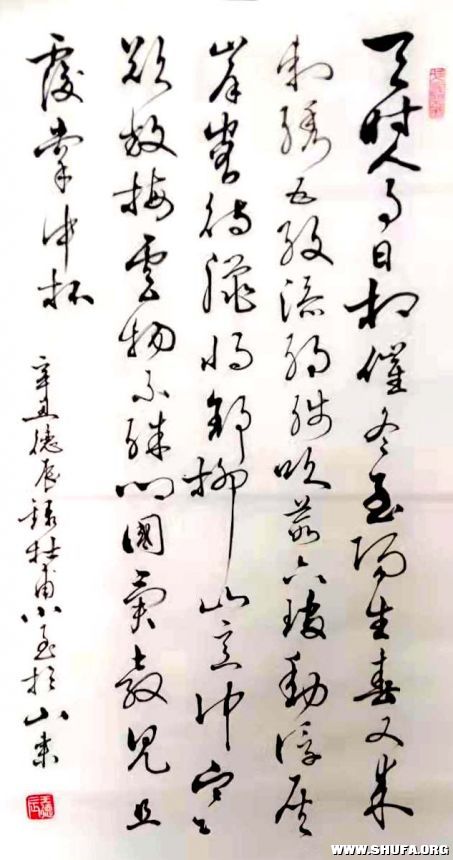 天时人事日相催冬至阳生春又来
刺绣五纹添弱线吹葭六琯動浮灰
岸容待腊将舒柳山意冲寒
欲放梅雲物不殊乡國異教兒且
覆掌中杯
辛丑德辰録杜甫小至於山東
WWW.SHUFA.ORG